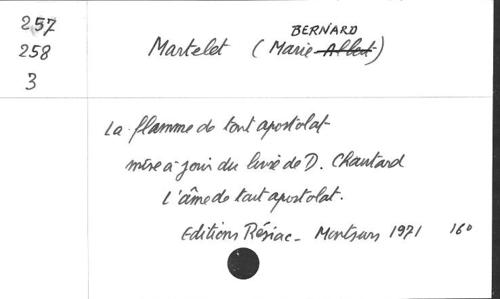 257
258
3
BERNARD
Martelet (Marie Albert)
La flamme de tout apostolat
mise à jour du livre de D. Chautard
L'âme de tout apostolat.
Editions Résiac - Montsurs 1971 160